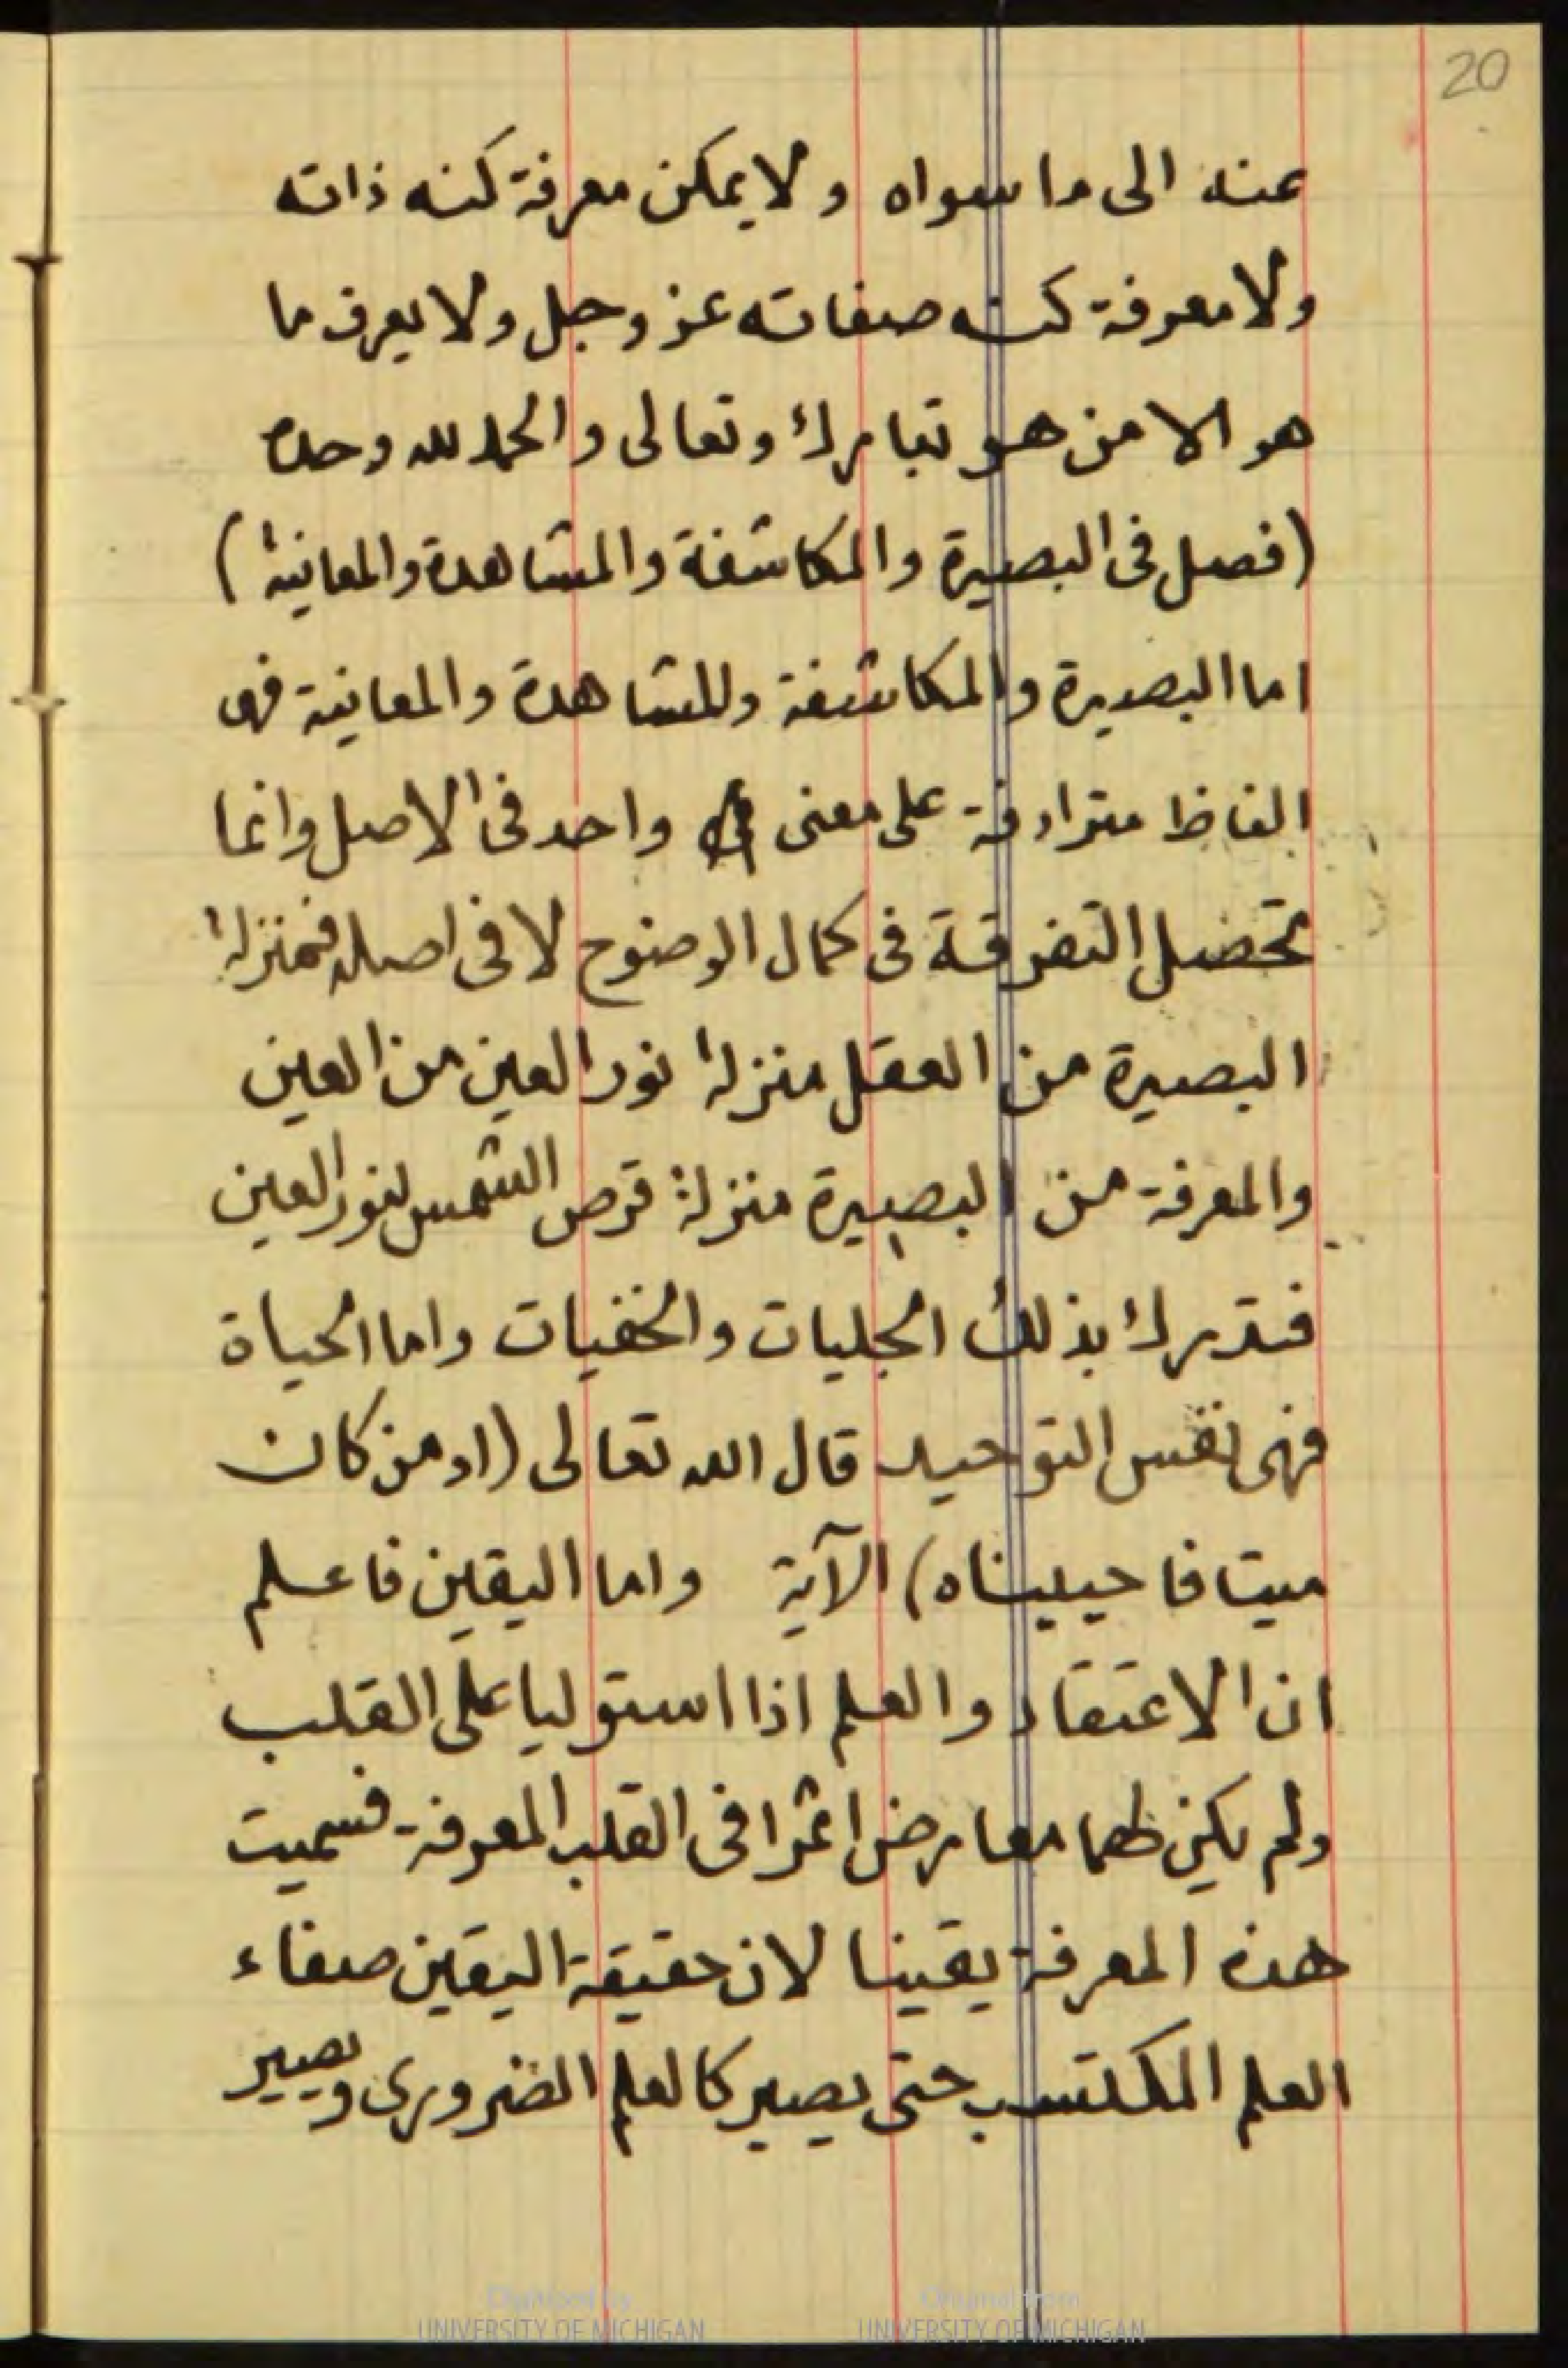 20
عنه الى ما سواه ولا يمكن معرفة كنه ذاته
ولا معرفة كنه صفاته عز وجل ولا يعرف ما
هو الا من هو تبارك وتعالى والحمد لله وحده
(فصل فى البصيرة والمكاشفة والمشاهدة والمعاينة)
اما البصيرة والمكاشفة والمشاهدة والمعاينة فهى
الفاظ مترادفة على معنى واحد فى الاصل وانما
تحصل التفرقة فى كمال الوضوح لا فى اصله فمنزلة
البصيرة من العقل منزلة نور العين من العين
والمعرفة من البصيرة منزلة قرص الشمس لنور العين
فتدرك بذلك الجليات والخفيات واما الحياة
فهى نفس التوحيد قال الله تعالى (او من كان
ميتا فاحييناه) الآية واما اليقين فاعلم
ان الاعتقاد والعلم اذا استوليا على القلب
ولم يكن لهما معارض اثمرا فى القلب المعرفة فسميت
هذه المعرفة يقينا لان حقيقة اليقين صفاء
العلم المكتسب حتى يصير كالعلم الضرورى ويصير
Digitized by
UNIVERSITY OF MICHIGAN
Original from
UNIVERSITY OF MICHIGAN